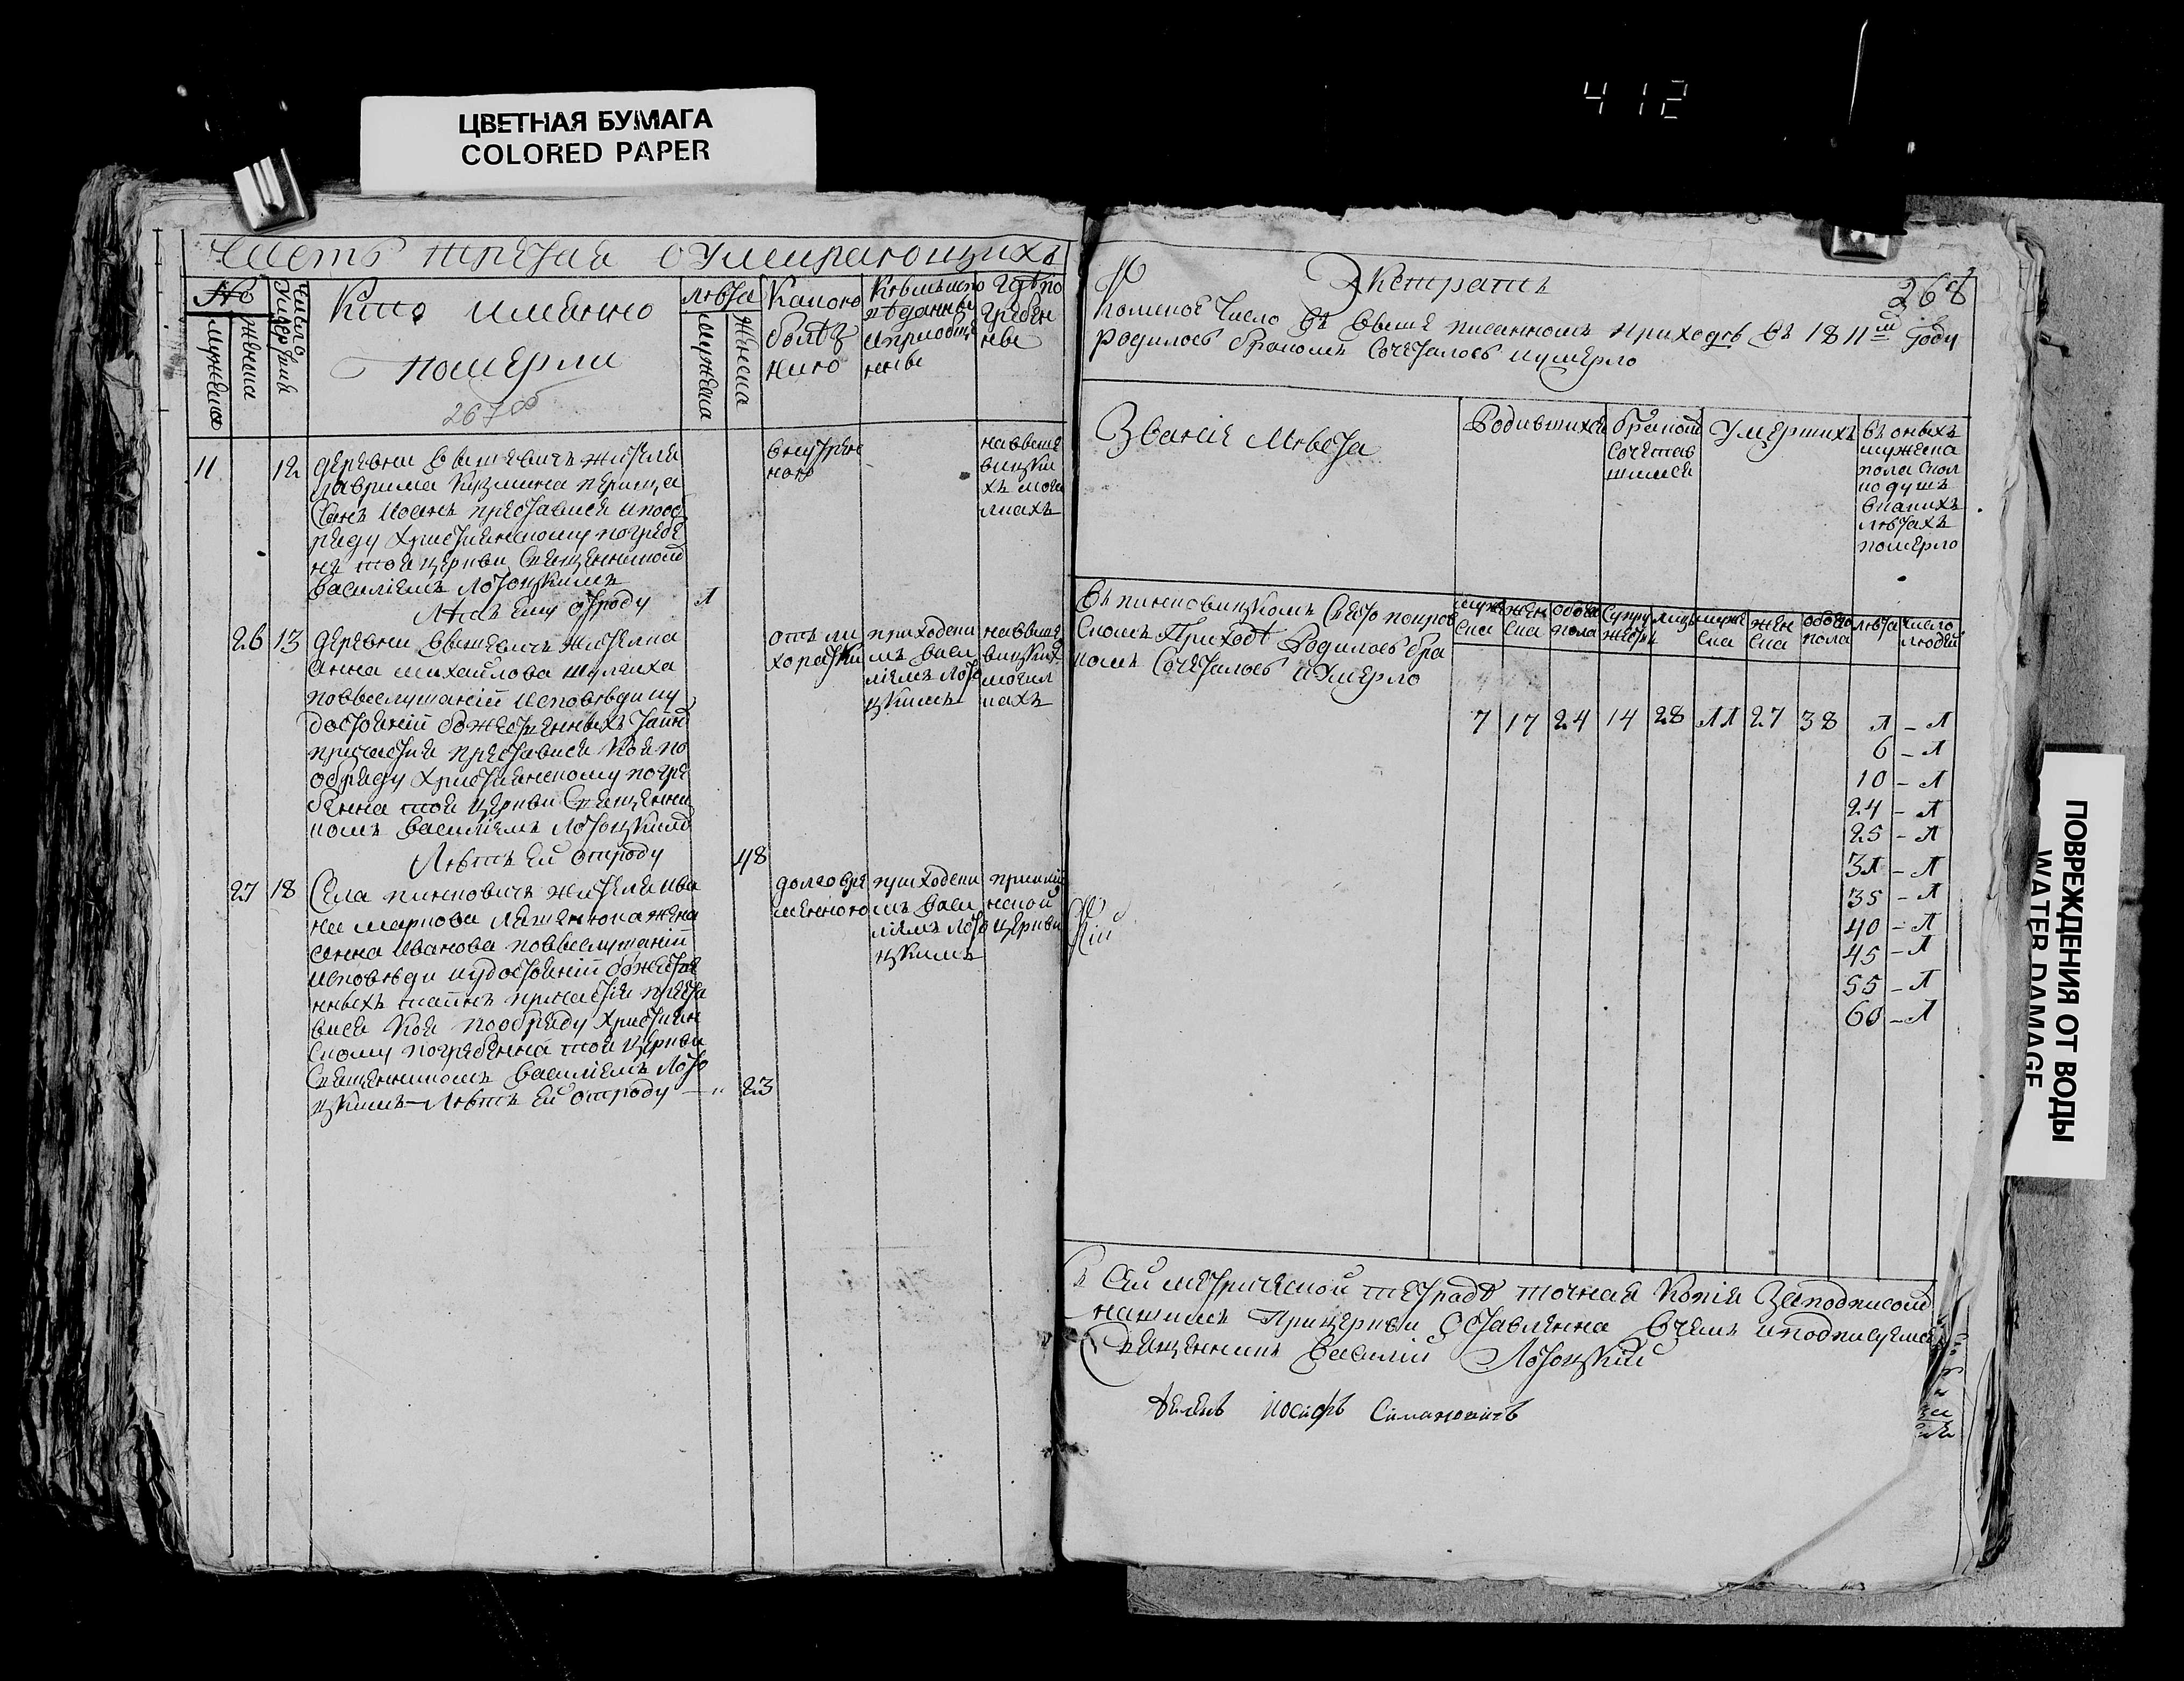 ЦВЕТНАЯ БУМАГА
COLORED PAPER
412
Часть третая о умирающихъ
№
мужеска
женска
число умертвія
Кто именно
померли
267 об
лѣта
мужеска
женска
Какою
болѣз
нию
Кѣмъ испо
вѣданны
и приобщ
енны
Гдѣ по
гребен
ны
11
12
деревни Вышевичъ жителя
Гаврила Кузмина
Сынъ Иоанъ преставися и по об
ряду Христиенскому погребе
нъ тоя церкви Священникомъ
Василіемъ Лотоцкимъ
Лѣтъ ему отроду
1
внутрен
нею
на выше
вицки
хъ моги
лкахъ
26
13
деревни Вышевичъ жителка
Анна Михайлова
по выслушаніи исповѣди и у
достоеніи божественныхъ таинъ
причастія преставися коя по
обряду Христіенскому погре
бенна тоя церкви Священни
комъ Василіемъ Лотоцкимъ
Лѣтъ ей отроду
48
отъ ли
хорадки
приходски
мъ Васи
ліемъ Лото
цкимъ
на выше
вицких
могил
кахъ
27
18
Села Пинковичъ жителя Ива
на Маркова жена
Анна Иванова по выслушаніи
исповѣди и удостоеніи божестве
нныхъ таинъ причастія преста
вися коя по обряду Христиен
скому погребенна тоя церкви
Священникомъ Василіемъ Лото
цкимъ Лѣтъ ей отроду
23
долговре
менною
приходски
мъ Васи
ліемъ Лото
цкимъ
церкви
268
Экстрактъ
Коликое число въ выше писанномъ приходѣ въ 1811 году
родилось бракомъ сочеталось и умерло
Званія Мѣста
Родившихся
бракомъ
сочетав
шихся
Умершихъ
въ оныхъ
мужеска
пола
по душъ
в какихъ
лѣтахъ
померло
Въ Пинковицкомъ Свято Покров
скомъ Приходѣ Родилось бра
комъ Сочеталось и Умерло
муже
ска
жен
ска
обоего
пола
супру
жествъ
лицъ
муже
ска
жен
ска
обоего
пола
лѣта
число
людей
7 17 24 14 28 11 27 38 1 – 1
6 – 1
10 – 1
24 – 1
25 – 1
31 – 1
35 – 1
40 – 1
45 – 1
55 – 1
60 – 1
Сей метрической тетради точная Копія За подписомъ
нашимъ При церкви Оставленна Вчемъ и подписуемся
Священникъ Василій Лотоцкій
Дячекъ Иосифъ
ПОВРЕЖДЕНИЯ ОТ ВОДЫ
WATER DAMAGE